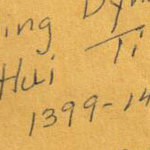 ing Dyn
Hui Ti
1399-14